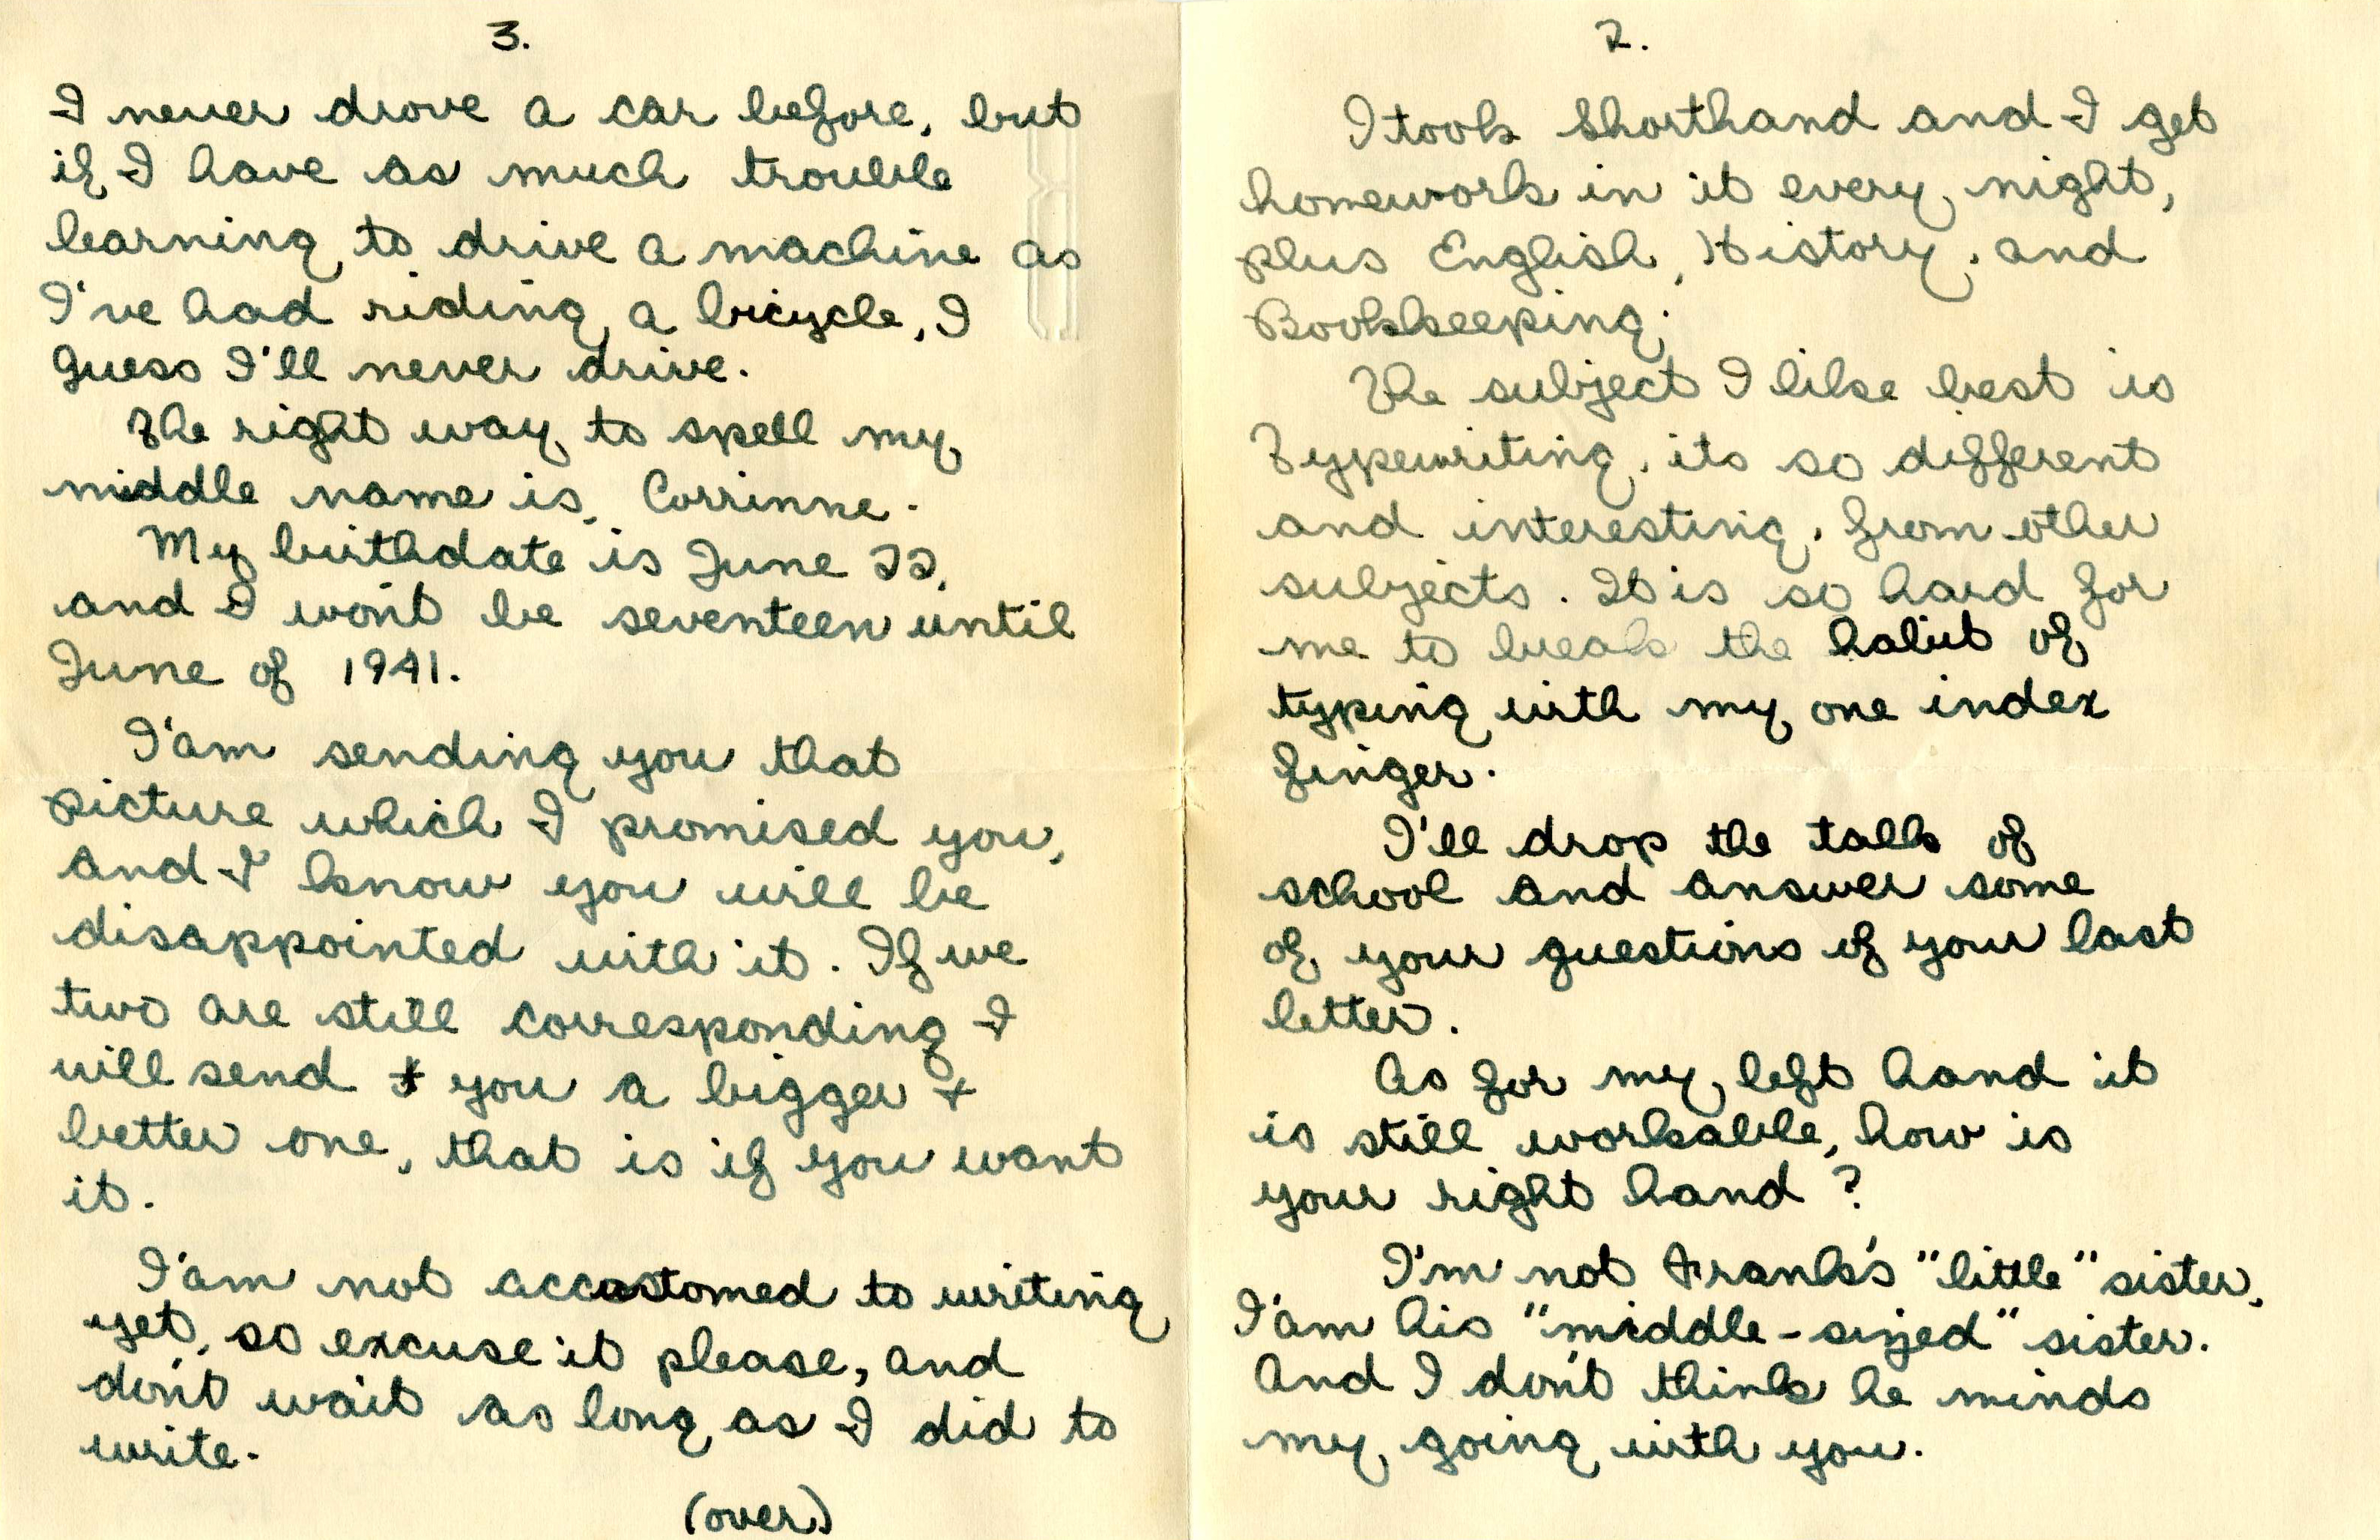 2.
I took Shorthand and I get
homework in it every night,
plus English, History, and
Bookkeeping.
The subject I like best is
Typewriting, its so different
and interesting, from other
subjects. It is so hard for
me to break the habit of
typing with my one index
finger.
I'll drop the talk of
school and answer some
of your questions of your last
letter.
As for my left hand it
is still workable, how is
your right hand?
I'm not Frank's "little" sister,
I'am his "middle-sized" sister.
And I don't think he minds
my going with you.
3.
I never drove a car before, but
if I have as much trouble
learning to drive a machine as
I've had riding a bicycle, I
guess I'll never drive.
The right way to spell my
middle name is, Corrinne.
My birthdate is June 22,
and I won't be seventeen until
June of 1941.
I'am sending you that
picture which I promised you,
and I know you will be
disappointed with it. If we
two are still corresponding I
will send you a bigger +
better one, that is if you want
it.
I'am not accustomed to writing
yet, so excuse it please, and
don't wait as long as I did to
write.
(over)